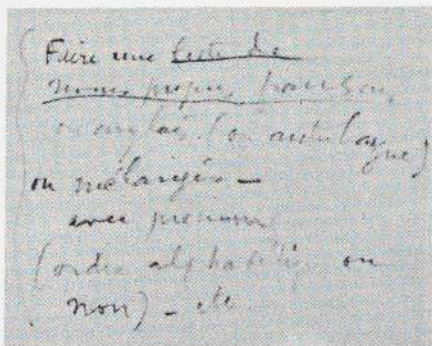 Faire une liste de
noms propres français,
ou anglais (ou autre langue)
ou mélangés —
avec prénoms
(ordre alphabétique ou
non) — etc